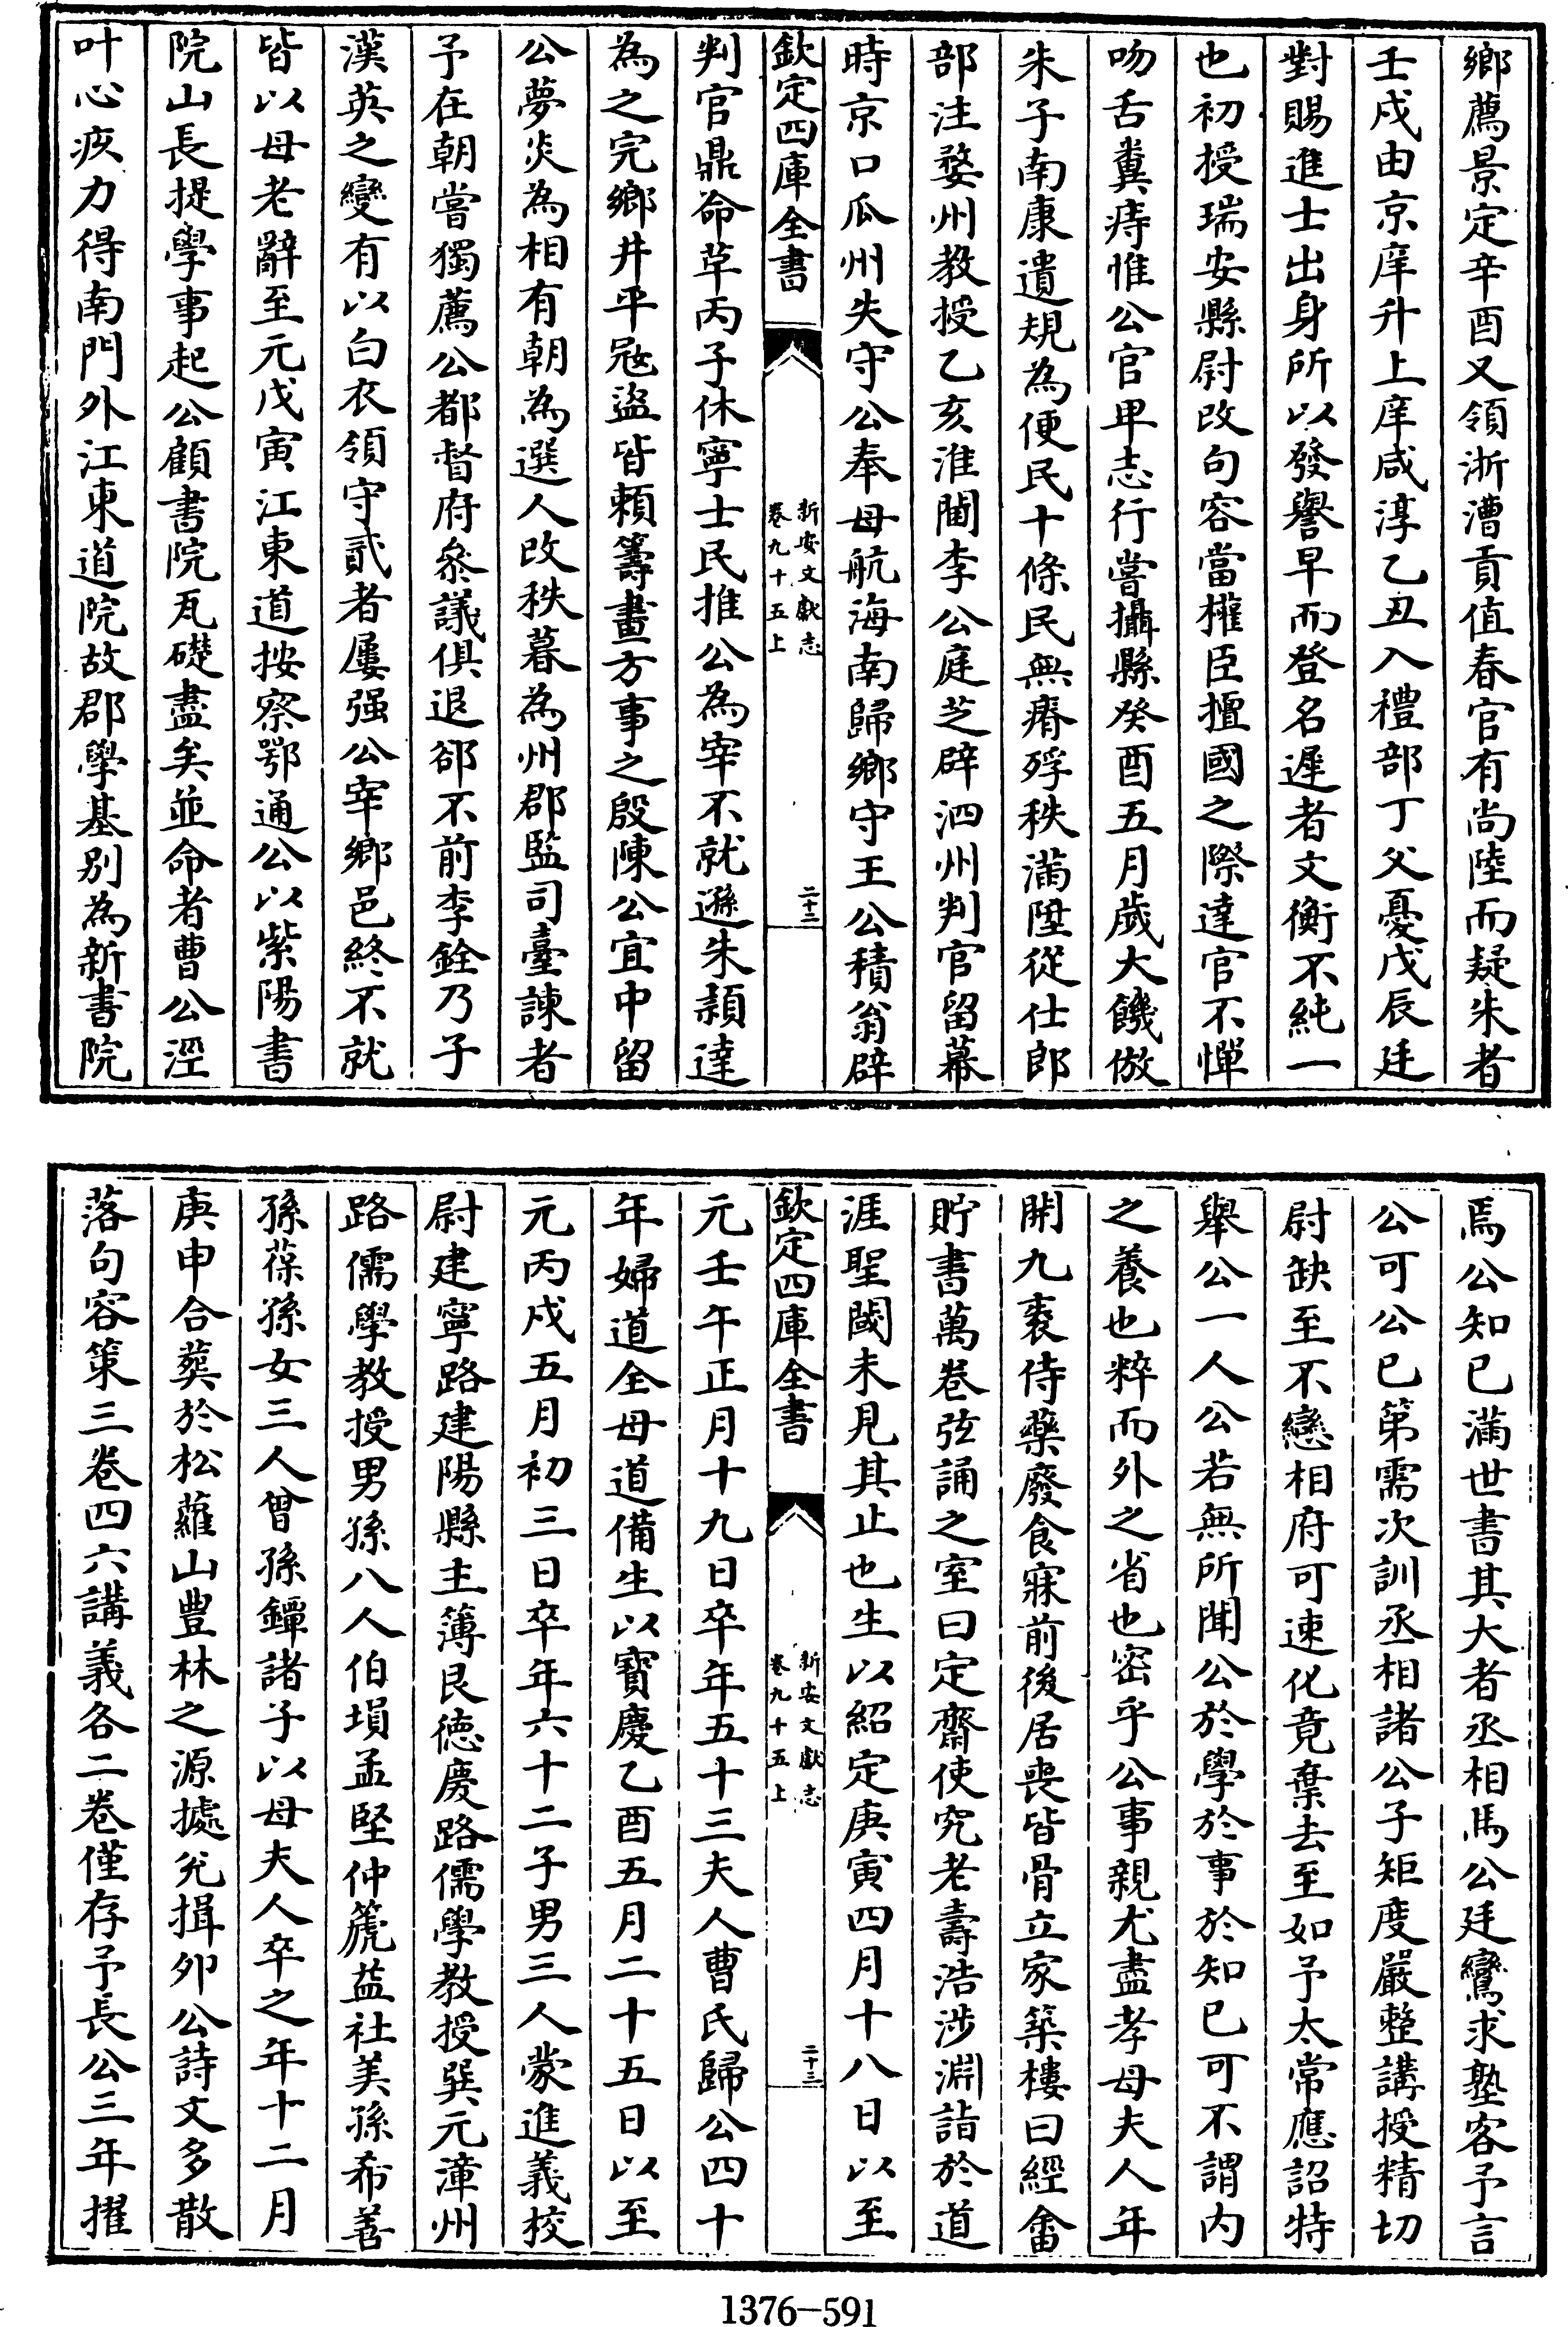 鄉薦景定辛酉又領浙漕貢值春官有尚陸而疑朱者
壬戌由京庠升上庠咸淳乙丑入禮部丁父憂戊辰廷
對賜進士出身所以發譽早而登名遲者文衡不純一
也初授瑞安縣尉改句容當權臣擅國之際達官不憚
吻舌糞痔惟公官卑志行嘗攝縣癸酉五月歲大饑倣
朱子南康遺規為便民十條民無瘠殍秩滿陞從仕郎
部注婺州教授乙亥淮閫李公庭芝辟泗州判官留幕
時京口瓜州失守公奉母航海南歸鄉守王公積翁辟
欽定四庫全書
新安文獻志
卷九十五上
二十二
判官鼎命草丙子休寧士民推公為宰不就遜朱潁達
為之完鄉井平冦盜皆賴籌畫方事之殷陳公宜中留
公夢炎為相有朝為選人改秩暮為州郡監司臺諫者
予在朝嘗獨薦公都督府叅議俱退郤不前李銓乃子
漢英之變有以白衣領守貳者屢强公宰鄉邑終不就
皆以母老辭至元戊寅江東道按察鄂通公以紫陽書
院山長提學事起公顧書院瓦礎盡矣並命者曹公涇
叶心疚力得南門外江東道院故郡學基別為新書院
焉公知已滿世書其大者丞相馬公廷鸞求塾客予言
公可公已第需次訓丞相諸公子矩度嚴整講授精切
尉缺至不戀相府可速化竟棄去至如予太常應詔特
舉公一人公若無所聞公於學於事於知已可不謂内
之養也粹而外之省也密乎公事親尤盡孝母夫人年
開九袠侍藥廢食寐前後居喪皆骨立家築樓曰經畬
貯書萬卷弦誦之室曰定齋使究老壽浩涉淵詣於道
涯聖閾未見其止也生以紹定庚寅四月十八日以至
欽定四庫全書
新安文獻志
卷九十五上
二十三
元壬午正月十九日卒年五十三夫人曹氏歸公四十
年婦道全母道備生以寶慶乙酉五月二十五日以至
元丙戌五月初三日卒年六十二子男三人蒙進義校
尉建寧路建陽縣主簿艮德慶路儒學教授巽元漳州
路儒學教授男孫八人伯塤孟堅仲篪益社美孫希善
孫葆孫女三人曾孫鐔諸子以母夫人卒之年十二月
庚申合葬於松蘿山豊林之源據兊揖夘公詩文多散
落句容策三卷四六講義各二卷僅存予長公三年擢
1376-591